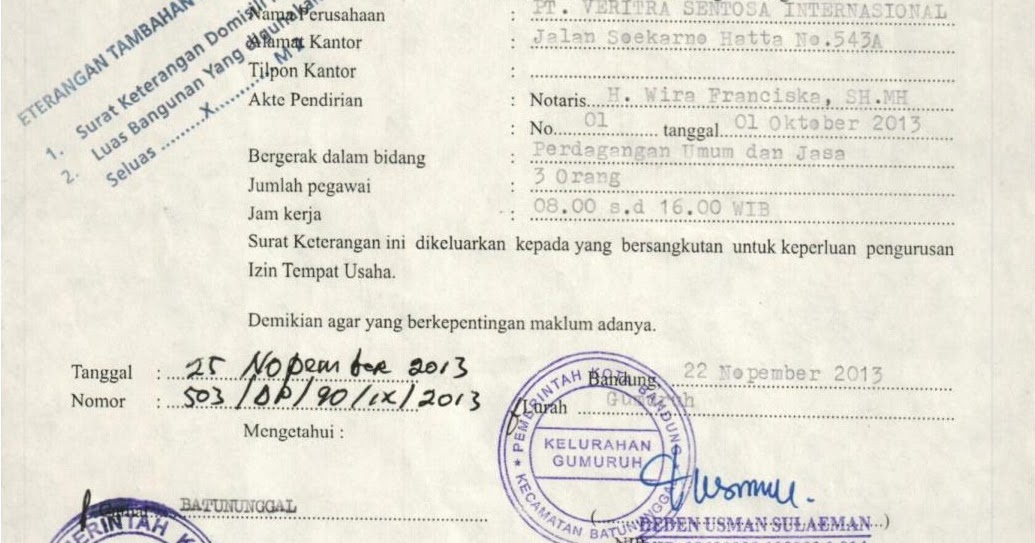 ETERANGAN TAMBAHAN
1. Surat Keterangan Domisili
2. Luas Bangunan Yang digunakan
Seluas ..........X.......... M2
Nama Perusahaan : PT. VERITRA SENTOSA INTERNASIONAL
Alamat Kantor : Jalan Soekarno Hatta No.543A
Tilpon Kantor :
Akte Pendirian : Notaris H. Wira Franciska, SH.MH
: No. 01 tanggal 01 Oktober 2013
Bergerak dalam bidang : Perdagangan Umum dan Jasa
Jumlah pegawai : 3 Orang
Jam kerja : 08.00 s.d 16.00 WIB
Surat Keterangan ini dikeluarkan kepada yang bersangkutan untuk keperluan pengurusan
Izin Tempat Usaha.
Demikian agar yang berkepentingan maklum adanya.
Tanggal : 25 Nopember 2013
Nomor : 503/DP/90/IX/2013
Mengetahui :
Bandung, 22 Nopember 2013
Lurah Gumuruh
PEMERINTAH KOTA BANDUNG
KELURAHAN
GUMURUH
KECAMATAN BATUNUNGGAL
Camat BATUNUNGGAL
PEMERINTAH KO
(DEDEN USMAN SULAEMAN)